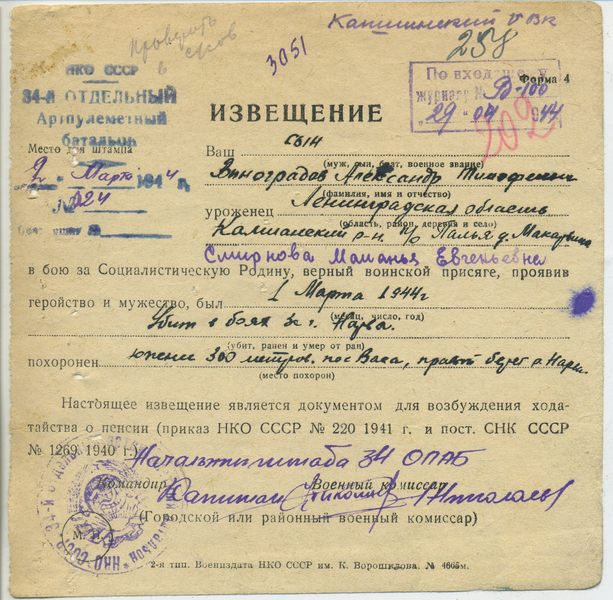 Кашинский РВК
проверить
в
258
3051
НКО СССР
34-й ОТДЕЛЬНЫЙ
Артпулеметный
батальон
Место для штампа
2 " Марта 1944 г.
№ 024
Форма 4
По входящ.
журналу № Р-100
" 29 " 04 1944
202
ИЗВЕЩЕНИЕ
Ваш сын
(муж, сын, брат, военное звание)
Виноградов Александр Тимофеевич
(фамилия, имя и отчество)
уроженец Ленинградская область
(область, район, деревня и село)
р-н п/о Палья д.
Смирнова Евгеньевна
в бою за Социалистическую Родину, верный воинской присяге, проявив
геройство и мужество, был 1 Марта 1944 г
(месяц, число, год)
Убит в боях за г. Нарва.
(убит, ранен и умер от ран)
похоронен южнее 300 метров. пос Васа, правый берег р. Нарва
(место похорон)
Настоящее извещение является документом для возбуждения хода-
тайства о пенсии (приказ НКО СССР № 220 1941 г. и пост. СНК СССР
№ 1269 1940 г.)
Начальник штаба 34 ОПАБ
Командир Военный комиссар
Капитан Николаев
(Городской или районный военный комиссар)
М. П.
2-я тип. Воениздата НКО СССР им. К. Ворошилова. № 4665м.